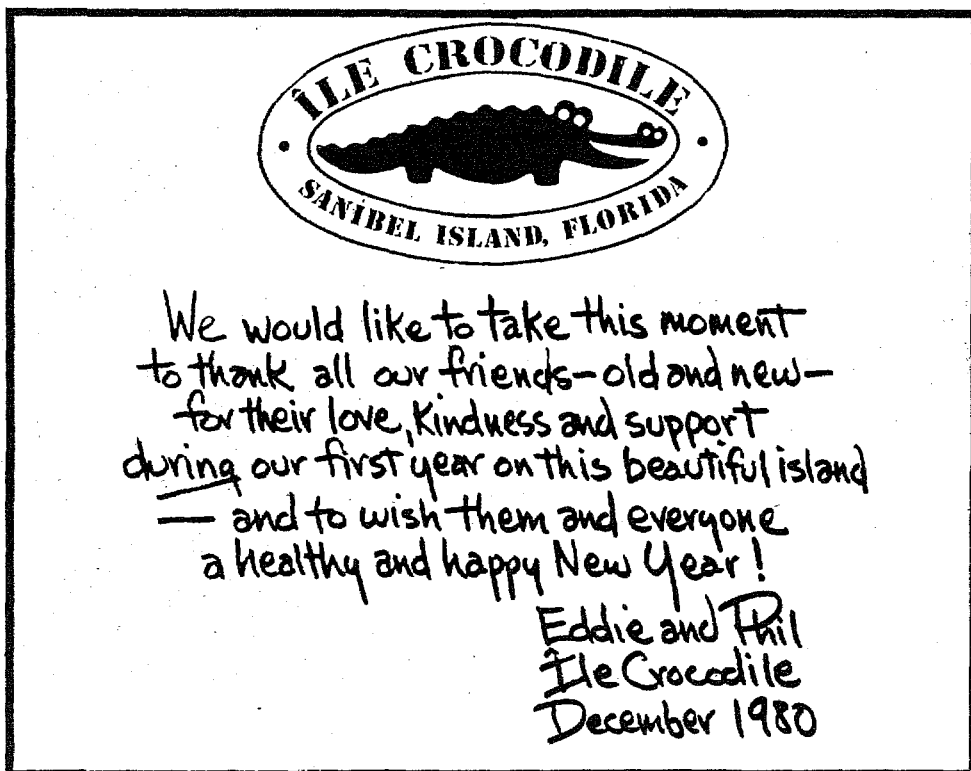 ÎLE CROCODILE
SANIBEL ISLAND, FLORIDA
We would like to take this moment
to thank all our friends-old and new-
for their love, kindness and support
during our first year on this beautiful island
— and to wish them and everyone
a healthy and happy New Year!
Eddie and Phil
Île Crocodile
December 1980